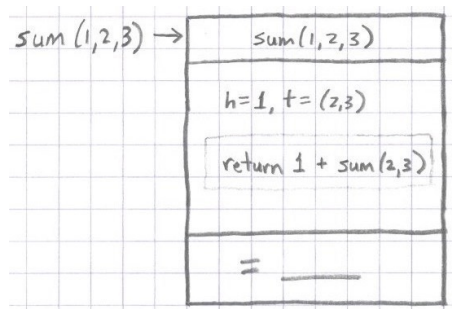 sum (1,2,3) → sum(1,2,3)
h=1, t= (2,3)
return 1 + sum(2,3)
= ____